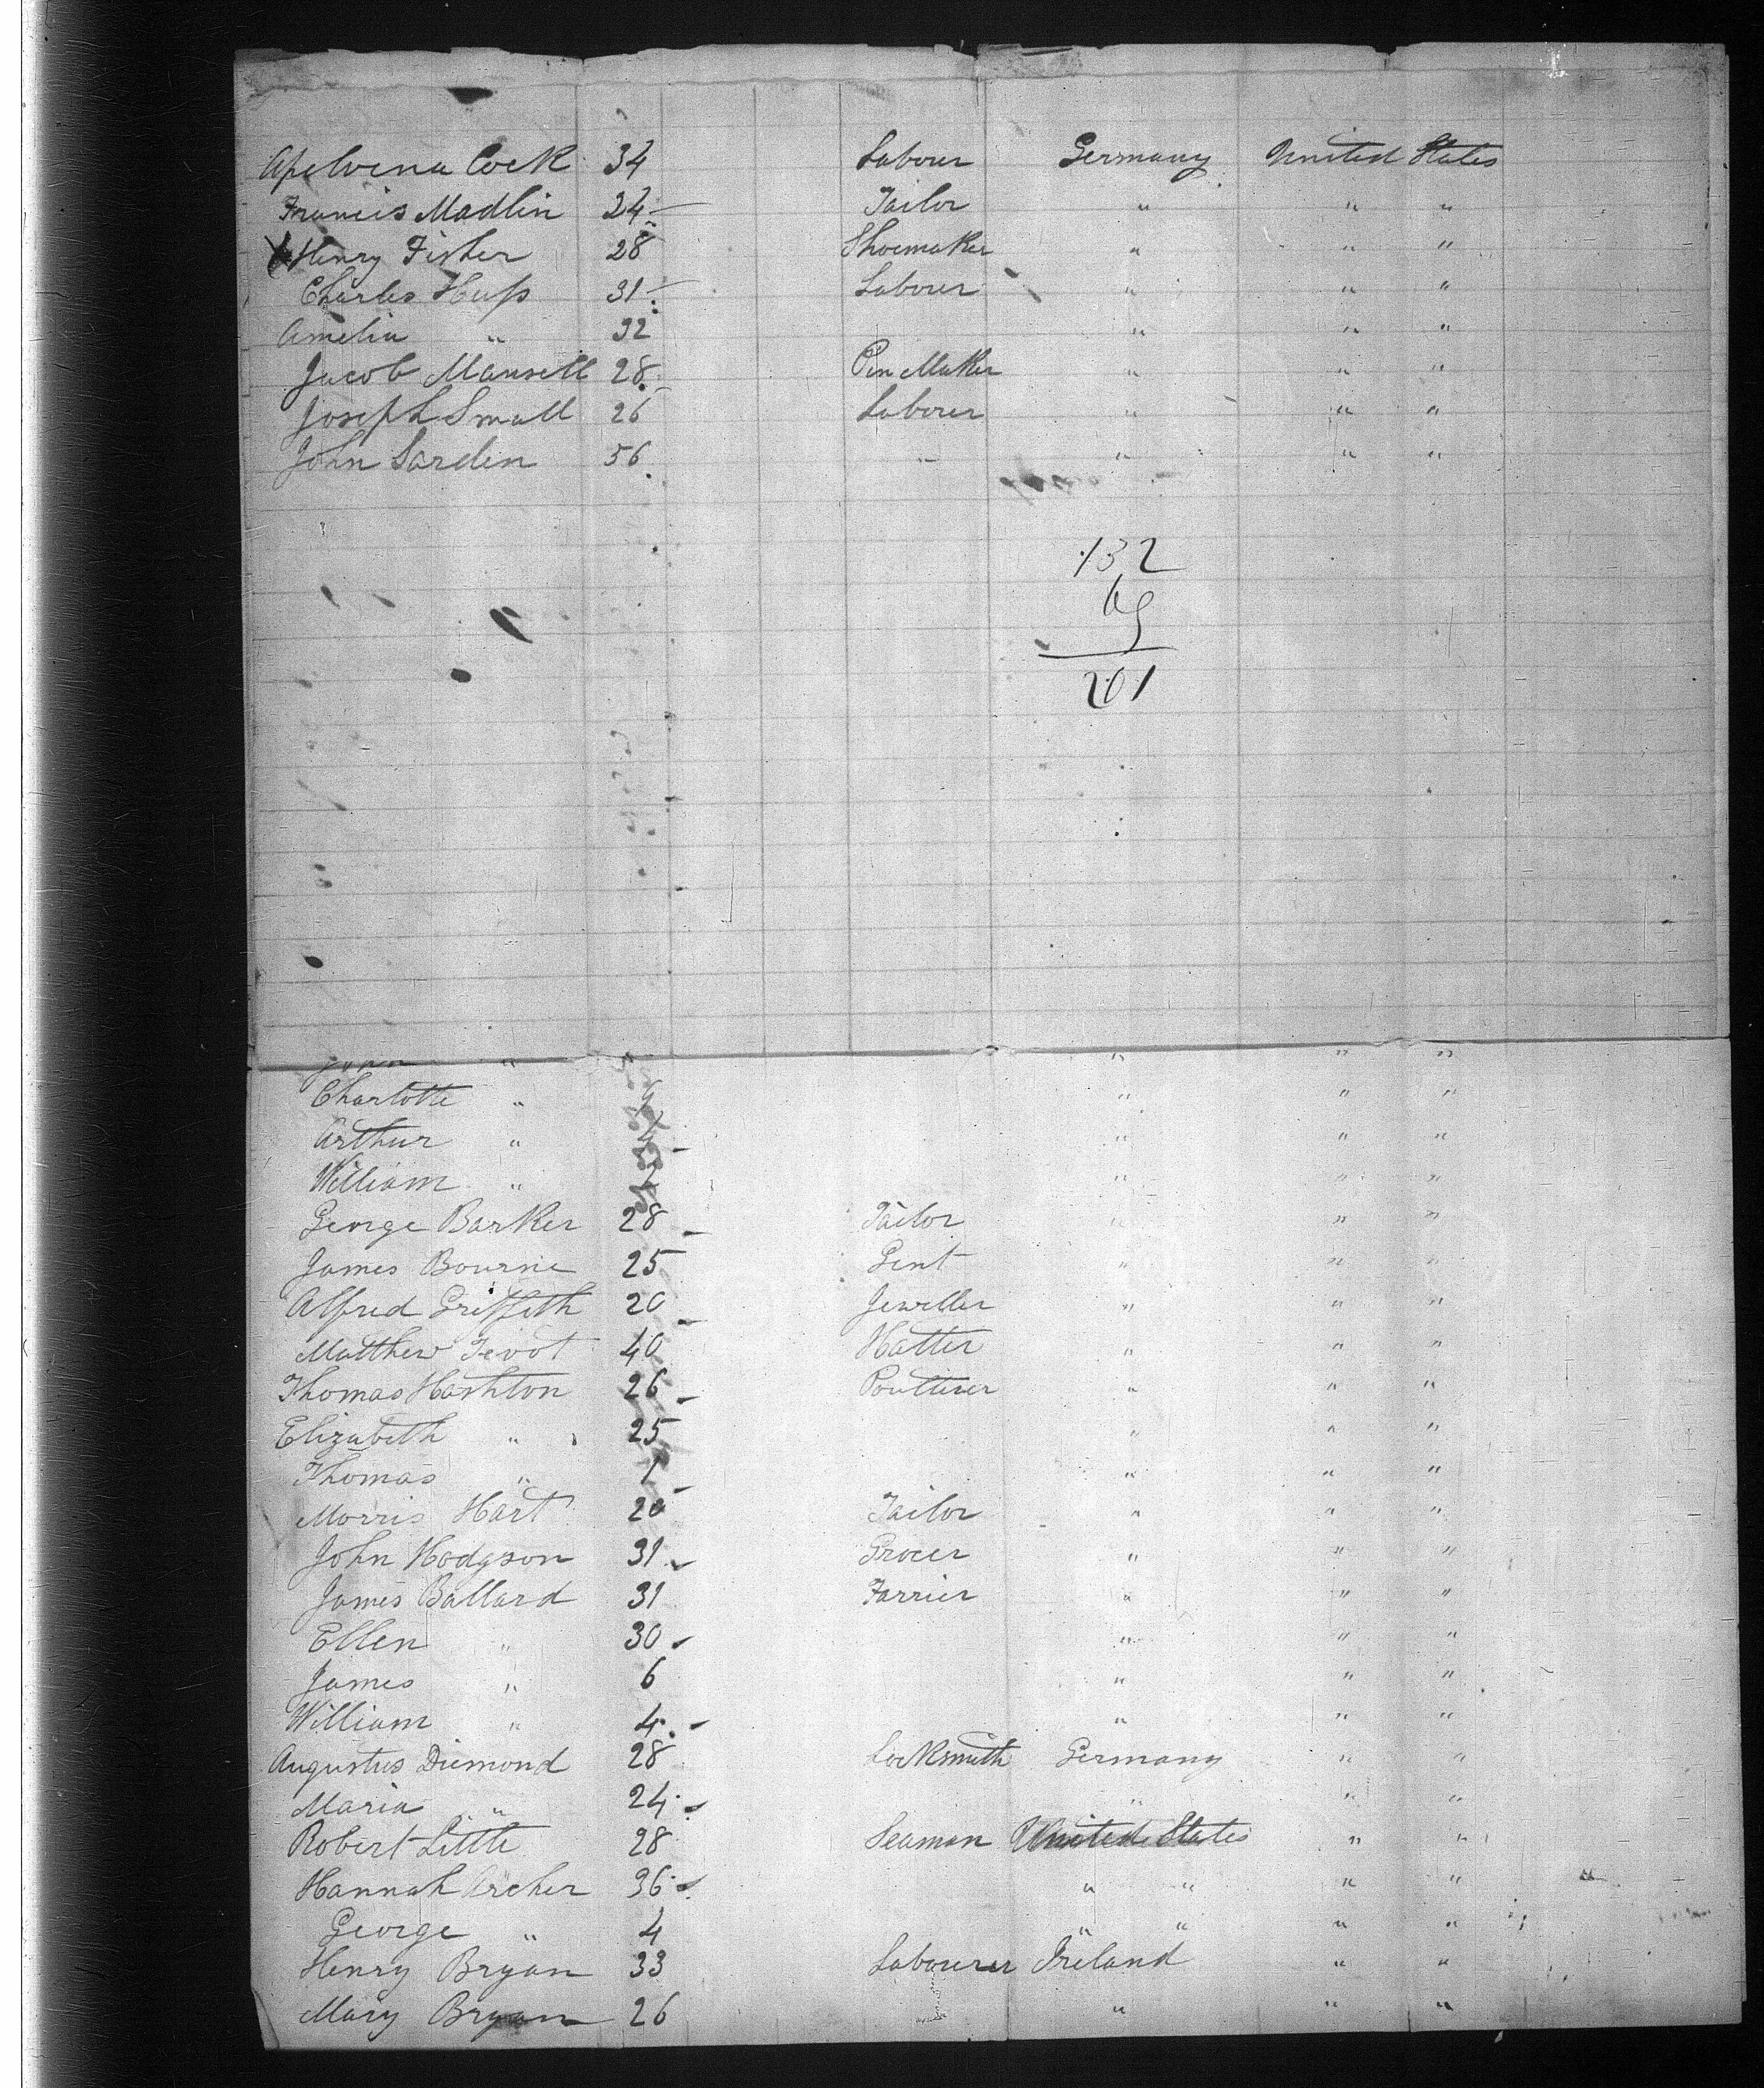 Apelvena Cock 34 Laborer Germany United States
Francis Madlin 24 Tailor " " "
Henry Fisher 28 Shoemaker " " "
Charles Hufs 31 Laborer " " "
Amelia " 32 " " "
Jacob Mansell 28 Pen Maker " " "
Joseph Small 26 Laborer " " "
John Sarden 56 " " " "
132
69
201
" " " "
Charlotte " " " "
Arthur " " " "
William " " " "
George Barker 28 Tailor " " "
James Bourne 25 Gent " " "
Alfred Griffith 20 Jeweller " " "
Matthew Tevot 40 Hatter " " "
Thomas Hashton 26 Poulterer " " "
Elizabeth " 25 " " "
Thomas " 1 " " "
Morris Hart 20 Tailor " " "
John Hodgson 31 Grocer " " "
James Ballard 31 Farrier " " "
Ellen " 30 " " "
James " 6 " " "
William " 4 " " "
Augustus Diemond 28 Locksmith Germany " "
Maria " 24 " " "
Robert Little 28 Seaman United States " "
Hannah Archer 36 " " " "
George " 4 " " " "
Henry Bryan 33 Labourer Ireland " "
Mary Bryan 26 " " "